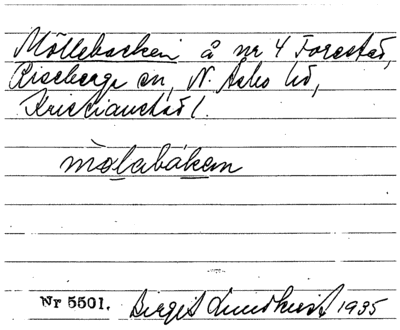 Möllebacken å nr 4 Forestad,
Riseberga sn, N. Åsbo hd,
Kristianstad l.
mòlabákan
Nr 5501. Birgit Lundkvist 1935